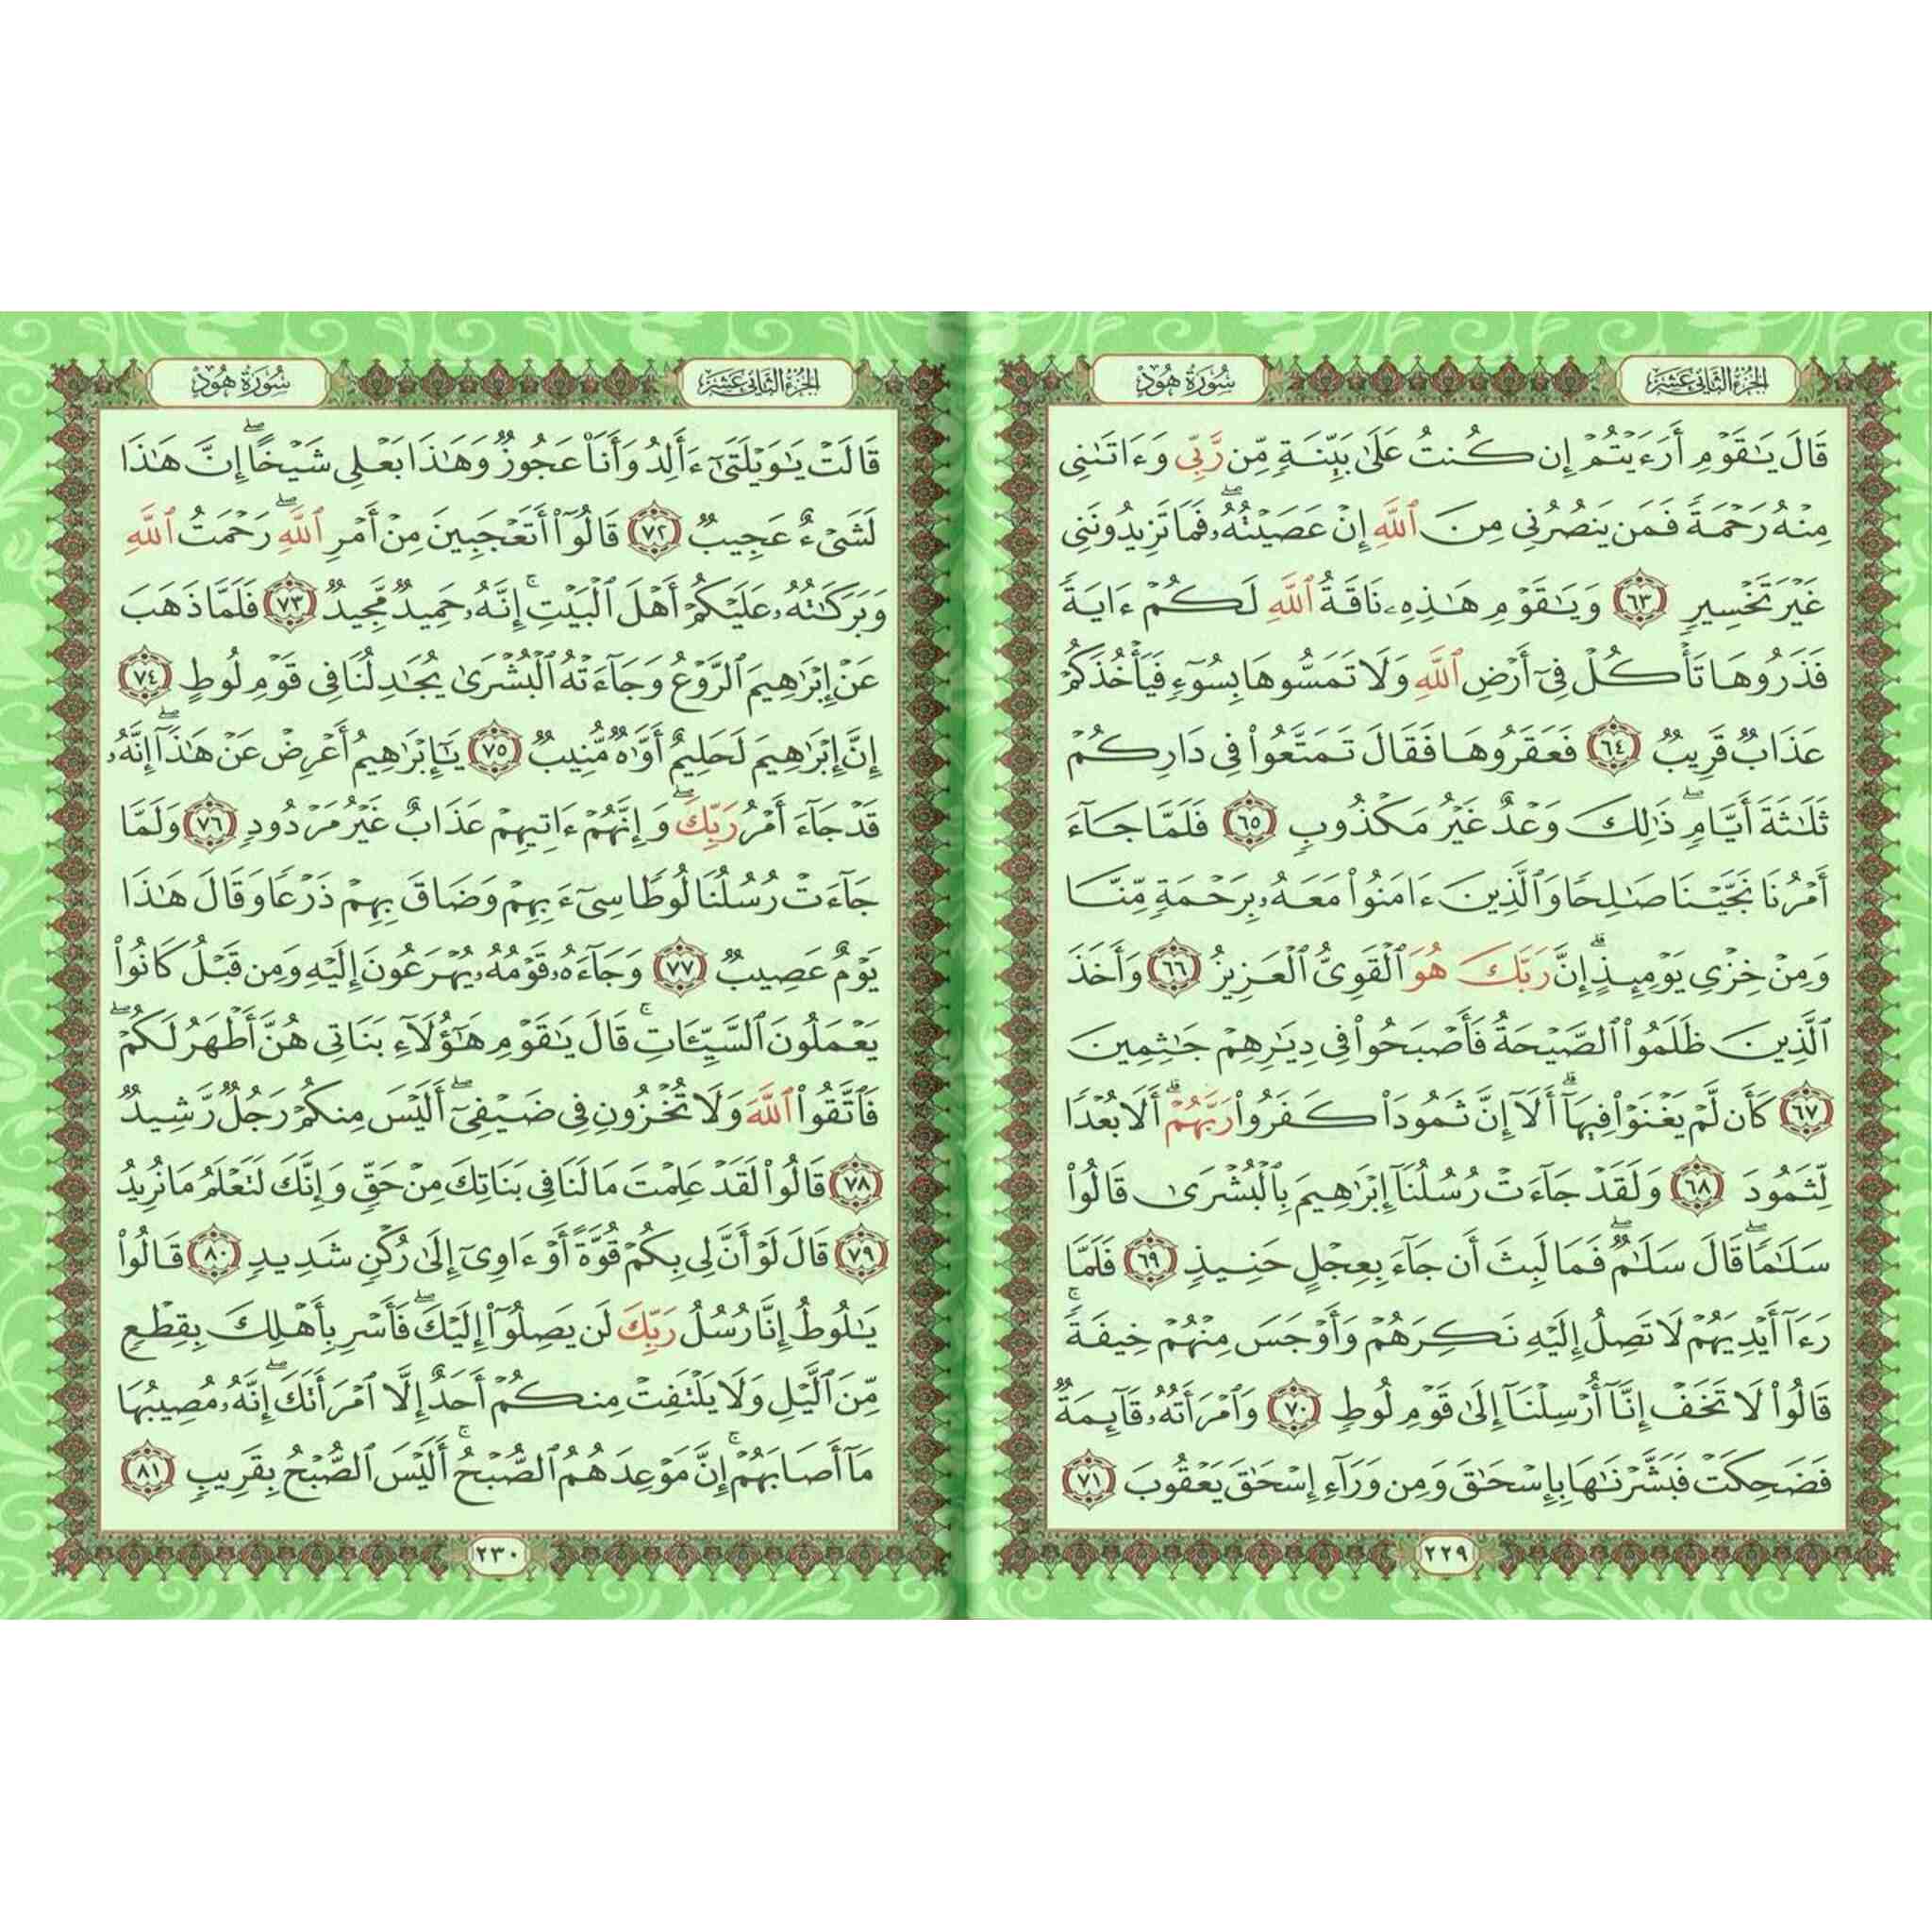 الجزء الثاني عشر
سُورَةُ هُودٍ
قَالَ يَٰقَوْمِ أَرَءَيْتُمْ إِن كُنتُ عَلَىٰ بَيِّنَةٍ مِّن رَّبِّى وَءَاتَىٰنِى
مِنْهُ رَحْمَةً فَمَن يَنصُرُنِى مِنَ ٱللَّهِ إِنْ عَصَيْتُهُۥۖ فَمَا تَزِيدُونَنِى
غَيْرَ تَخْسِيرٍ ٦٣ وَيَٰقَوْمِ هَٰذِهِۦ نَاقَةُ ٱللَّهِ لَكُمْ ءَايَةً
فَذَرُوهَا تَأْكُلْ فِىٓ أَرْضِ ٱللَّهِ وَلَا تَمَسُّوهَا بِسُوٓءٍ فَيَأْخُذَكُمْ
عَذَابٌ قَرِيبٌ ٦٤ فَعَقَرُوهَا فَقَالَ تَمَتَّعُوا۟ فِى دَارِكُمْ
ثَلَٰثَةَ أَيَّامٍۖ ذَٰلِكَ وَعْدٌ غَيْرُ مَكْذُوبٍ ٦٥ فَلَمَّا جَآءَ
أَمْرُنَا نَجَّيْنَا صَٰلِحًا وَٱلَّذِينَ ءَامَنُوا۟ مَعَهُۥ بِرَحْمَةٍ مِّنَّا
وَمِنْ خِزْىِ يَوْمِئِذٍۗ إِنَّ رَبَّكَ هُوَ ٱلْقَوِىُّ ٱلْعَزِيزُ ٦٦ وَأَخَذَ
ٱلَّذِينَ ظَلَمُوا۟ ٱلصَّيْحَةُ فَأَصْبَحُوا۟ فِى دِيَٰرِهِمْ جَٰثِمِينَ
٦٧ كَأَن لَّمْ يَغْنَوْا۟ فِيهَآۗ أَلَآ إِنَّ ثَمُودَا۟ كَفَرُوا۟ رَبَّهُمْۗ أَلَا بُعْدًا
لِّثَمُودَ ٦٨ وَلَقَدْ جَآءَتْ رُسُلُنَآ إِبْرَٰهِيمَ بِٱلْبُشْرَىٰ قَالُوا۟
سَلَٰمًاۖ قَالَ سَلَٰمٌۖ فَمَا لَبِثَ أَن جَآءَ بِعِجْلٍ حَنِيذٍ ٦٩ فَلَمَّا
رَءَآ أَيْدِيَهُمْ لَا تَصِلُ إِلَيْهِ نَكِرَهُمْ وَأَوْجَسَ مِنْهُمْ خِيفَةًۚ
قَالُوا۟ لَا تَخَفْ إِنَّآ أُرْسِلْنَآ إِلَىٰ قَوْمِ لُوطٍ ٧٠ وَٱمْرَأَتُهُۥ قَآئِمَةٌ
فَضَحِكَتْ فَبَشَّرْنَٰهَا بِإِسْحَٰقَ وَمِن وَرَآءِ إِسْحَٰقَ يَعْقُوبَ ٧١
٢٢٩
الجزء الثاني عشر
سُورَةُ هُودٍ
قَالَتْ يَٰوَيْلَتَىٰٓ ءَأَلِدُ وَأَنَا۠ عَجُوزٌ وَهَٰذَا بَعْلِى شَيْخًاۖ إِنَّ هَٰذَا
لَشَىْءٌ عَجِيبٌ ٧٢ قَالُوٓا۟ أَتَعْجَبِينَ مِنْ أَمْرِ ٱللَّهِۖ رَحْمَتُ ٱللَّهِ
وَبَرَكَٰتُهُۥ عَلَيْكُمْ أَهْلَ ٱلْبَيْتِۚ إِنَّهُۥ حَمِيدٌ مَّجِيدٌ ٧٣ فَلَمَّا ذَهَبَ
عَنْ إِبْرَٰهِيمَ ٱلرَّوْعُ وَجَآءَتْهُ ٱلْبُشْرَىٰ يُجَٰدِلُنَا فِى قَوْمِ لُوطٍ ٧٤
إِنَّ إِبْرَٰهِيمَ لَحَلِيمٌ أَوَّٰهٌ مُّنِيبٌ ٧٥ يَٰٓإِبْرَٰهِيمُ أَعْرِضْ عَنْ هَٰذَآۖ إِنَّهُۥ
قَدْ جَآءَ أَمْرُ رَبِّكَۖ وَإِنَّهُمْ ءَاتِيهِمْ عَذَابٌ غَيْرُ مَرْدُودٍ ٧٦ وَلَمَّا
جَآءَتْ رُسُلُنَا لُوطًا سِىٓءَ بِهِمْ وَضَاقَ بِهِمْ ذَرْعًا وَقَالَ هَٰذَا
يَوْمٌ عَصِيبٌ ٧٧ وَجَآءَهُۥ قَوْمُهُۥ يُهْرَعُونَ إِلَيْهِ وَمِن قَبْلُ كَانُوا۟
يَعْمَلُونَ ٱلسَّيِّـَٔاتِۚ قَالَ يَٰقَوْمِ هَٰٓؤُلَآءِ بَنَاتِى هُنَّ أَطْهَرُ لَكُمْۖ
فَٱتَّقُوا۟ ٱللَّهَ وَلَا تُخْزُونِ فِى ضَيْفِىٓۖ أَلَيْسَ مِنكُمْ رَجُلٌ رَّشِيدٌ
٧٨ قَالُوا۟ لَقَدْ عَلِمْتَ مَا لَنَا فِى بَنَاتِكَ مِنْ حَقٍّ وَإِنَّكَ لَتَعْلَمُ مَا نُرِيدُ
٧٩ قَالَ لَوْ أَنَّ لِى بِكُمْ قُوَّةً أَوْ ءَاوِىٓ إِلَىٰ رُكْنٍ شَدِيدٍ ٨٠ قَالُوا۟
يَٰلُوطُ إِنَّا رُسُلُ رَبِّكَ لَن يَصِلُوٓا۟ إِلَيْكَۖ فَأَسْرِ بِأَهْلِكَ بِقِطْعٍ
مِّنَ ٱلَّيْلِ وَلَا يَلْتَفِتْ مِنكُمْ أَحَدٌ إِلَّا ٱمْرَأَتَكَۖ إِنَّهُۥ مُصِيبُهَا
مَآ أَصَابَهُمْۚ إِنَّ مَوْعِدَهُمُ ٱلصُّبْحُۚ أَلَيْسَ ٱلصُّبْحُ بِقَرِيبٍ ٨١
٢٣٠